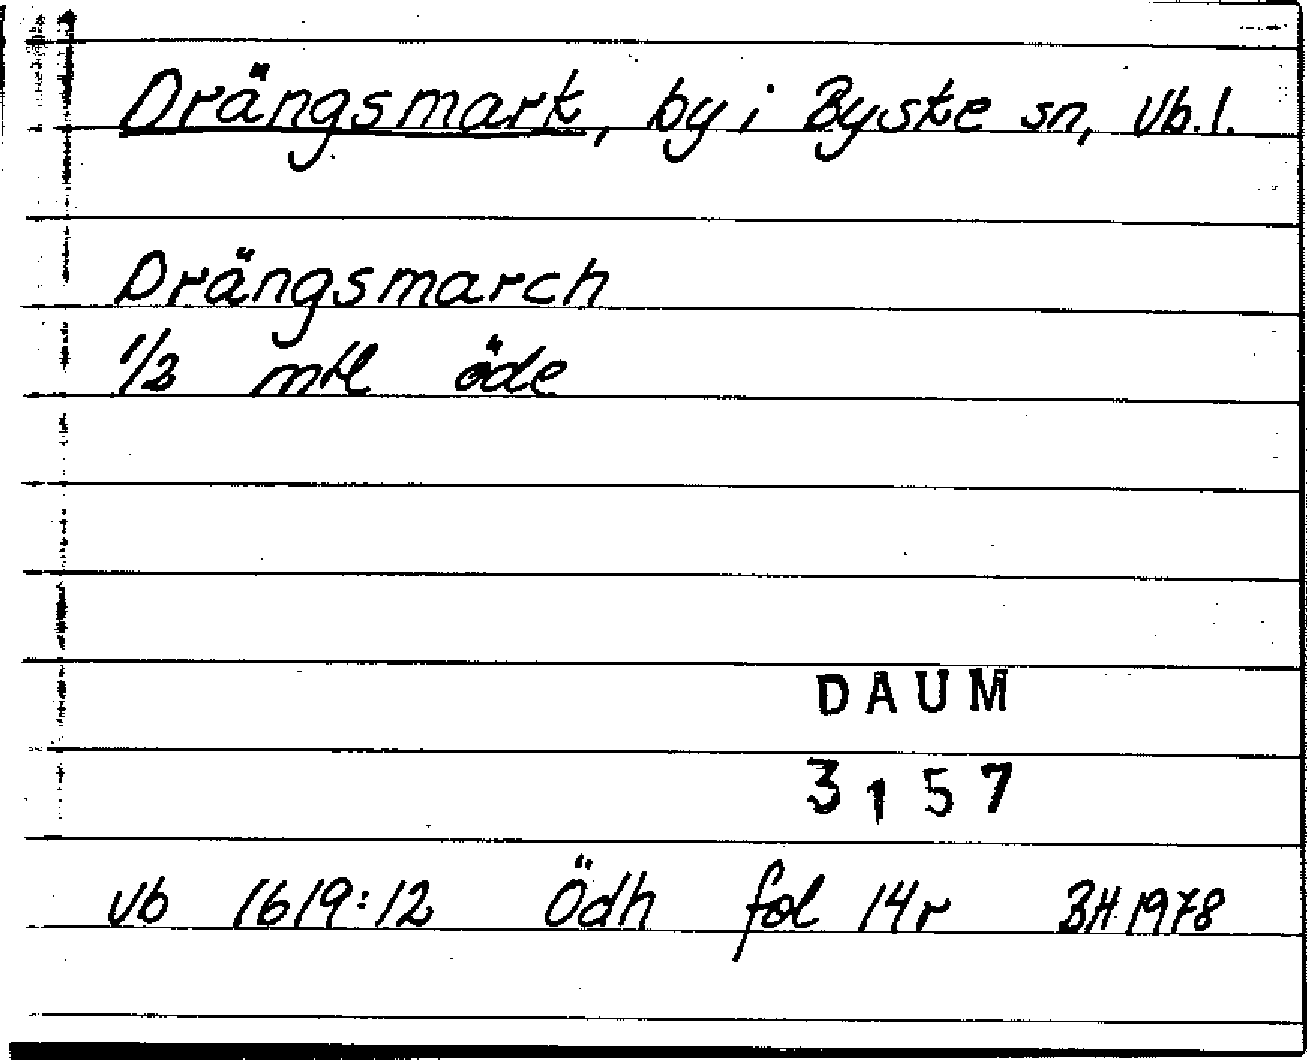 Drängsmark, by i Byske sn, Vb.l.
Drängsmarch
1/2 mtl öde
DAUM
3157
Vb 1619:12 Ödh fol 14r BH 1978